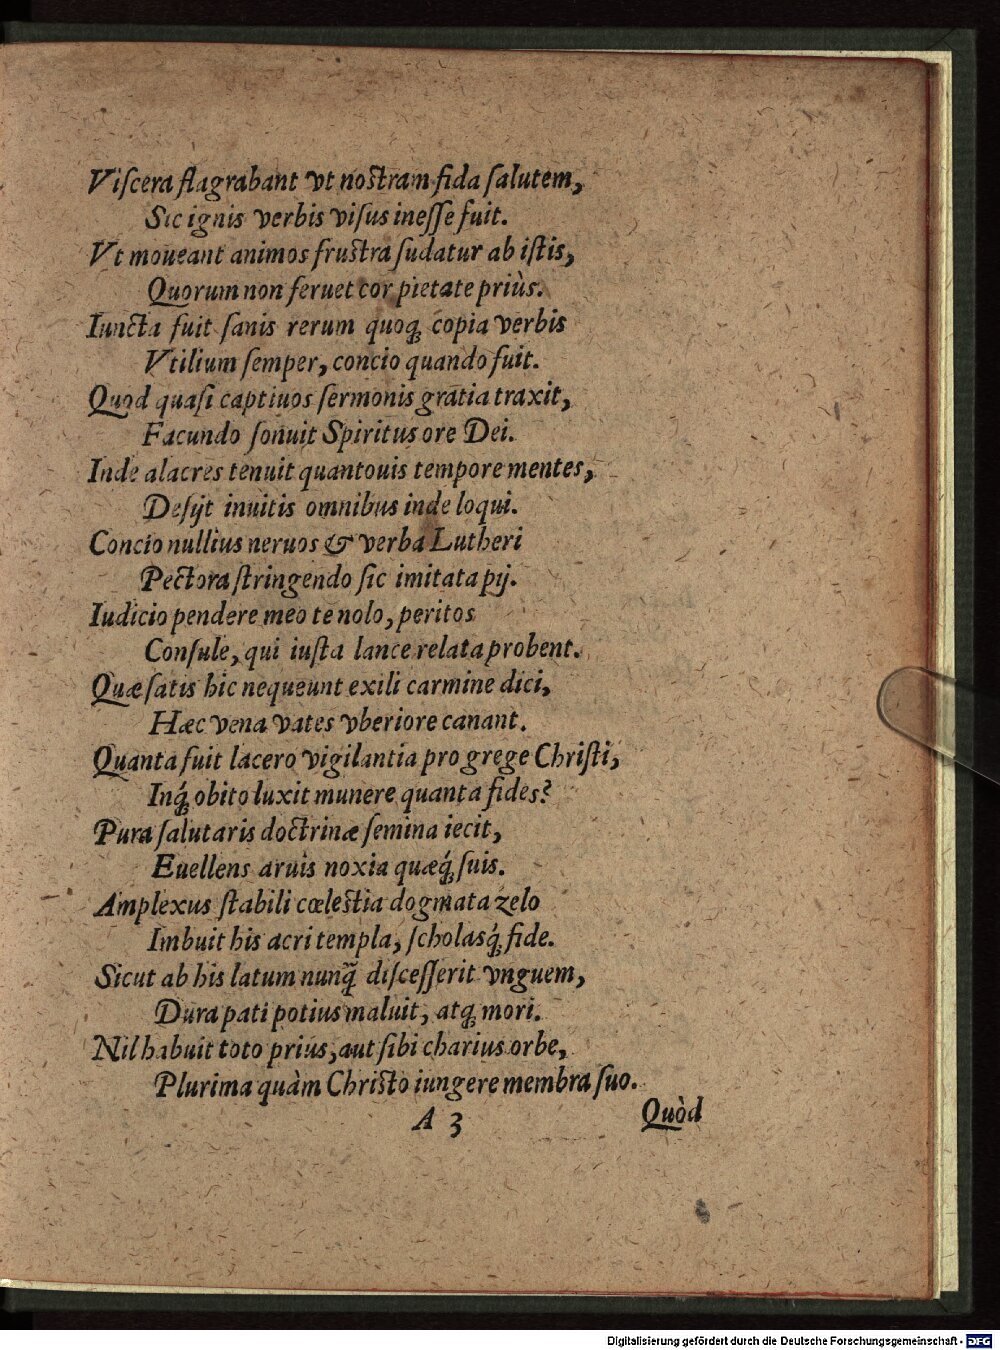 Viſcera flagrabant vt noſtram fida ſalutem,
Sic ignis verbis viſus ineſſe fuit.
Vt moueant animos fruſtra ſudatur ab iſtis,
Quorum non feruet cor pietate priùs.
Iuncta fuit ſanis rerum quoq́; copia verbis
Vtilium ſemper, concio quando fuit.
Quod quaſi captiuos ſermonis gratia traxit,
Facundo ſonuit Spiritus ore Dei.
Inde alacres tenuit quantouis tempore mentes,
Deſijt inuitis omnibus inde loqui.
Concio nullius neruos & verba Lutheri
Pectora ſtringendo ſic imitata pij.
Iudicio pendere meo te nolo, peritos
Conſule, qui iuſta lance relata probent.
Quæ ſatis hic nequeunt exili carmine dici,
Hæc vena vates vberiore canant.
Quanta fuit lacero vigilantia pro grege Chriſti,
Inq́; obito luxit munere quanta fides?
Pura ſalutaris doctrinæ ſemina iecit,
Euellens aruis noxia quæq́; ſuis.
Amplexus ſtabili cœleſtia dogmata zelo
Imbuit his acri templa, ſcholasq́; fide.
Sicut ab his latum nunq̃ diſceſſerit vnguem,
Dura pati potius maluit, atq; mori.
Nil habuit toto prius, aut ſibi charius orbe,
Plurima quàm Chriſto iungere membra ſuo.
A 3
Quòd
Digitalisierung gefördert durch die Deutsche Forschungsgemeinschaft - DFG